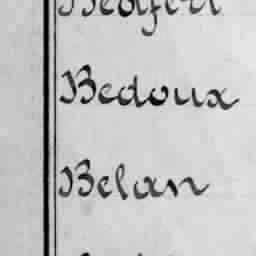 Bedoux
Belan